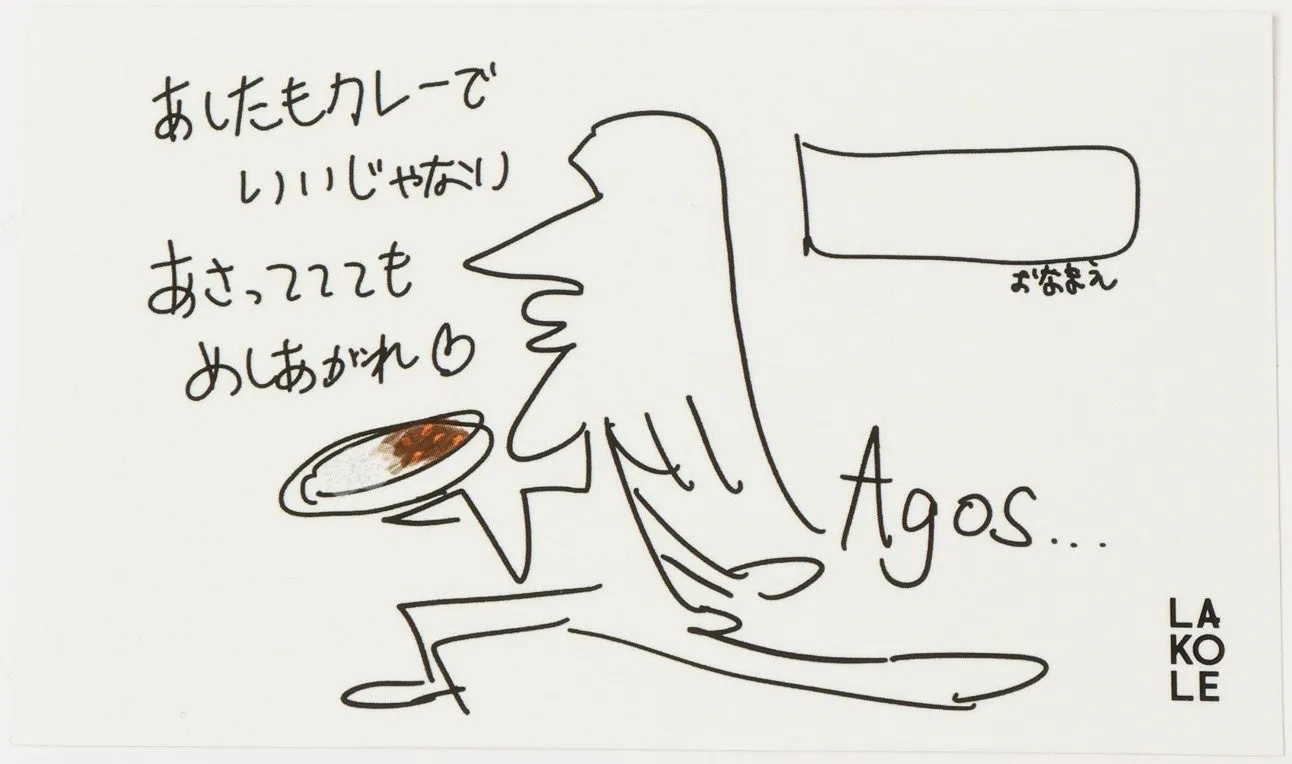 あしたもカレーで
いいじゃない
あさってててても
めしあがれ
おなまえ
Agos...
LA
KO
LE